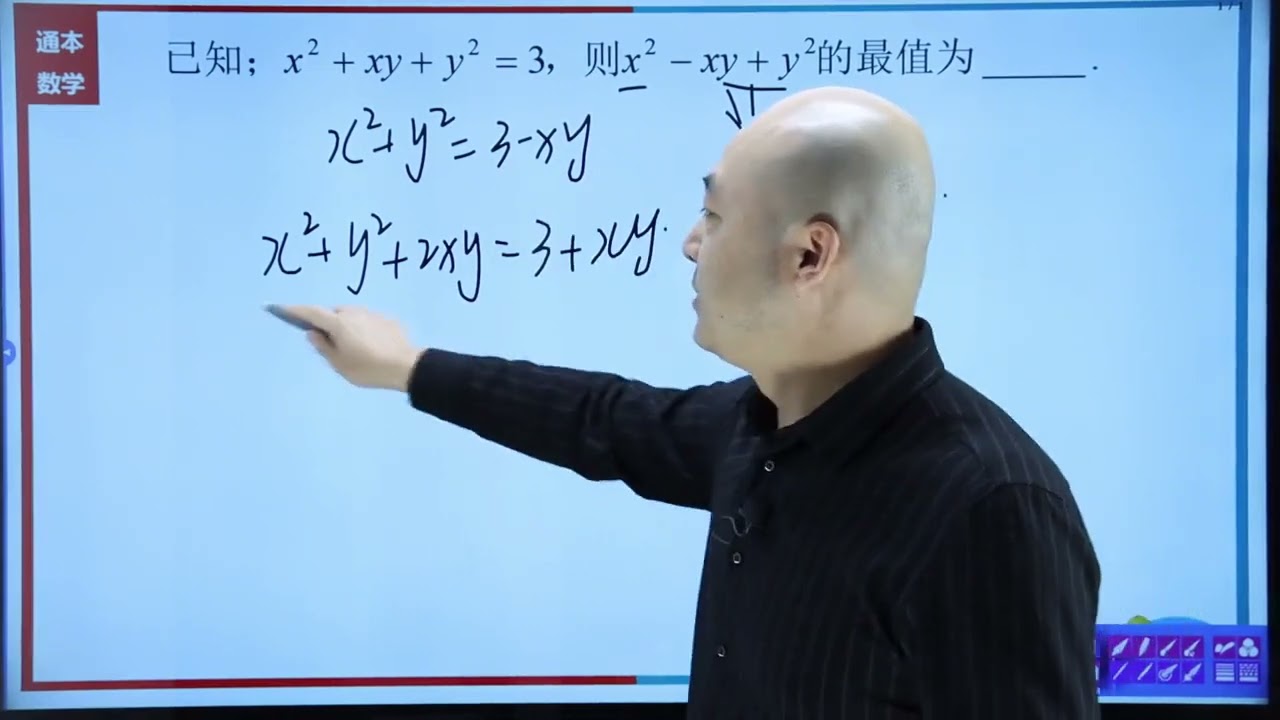 通本
数学
已知；x² + xy + y² = 3，则x² − xy + y²的最值为_____.
x²+y²=3-xy
x²+y²+2xy=3+xy.